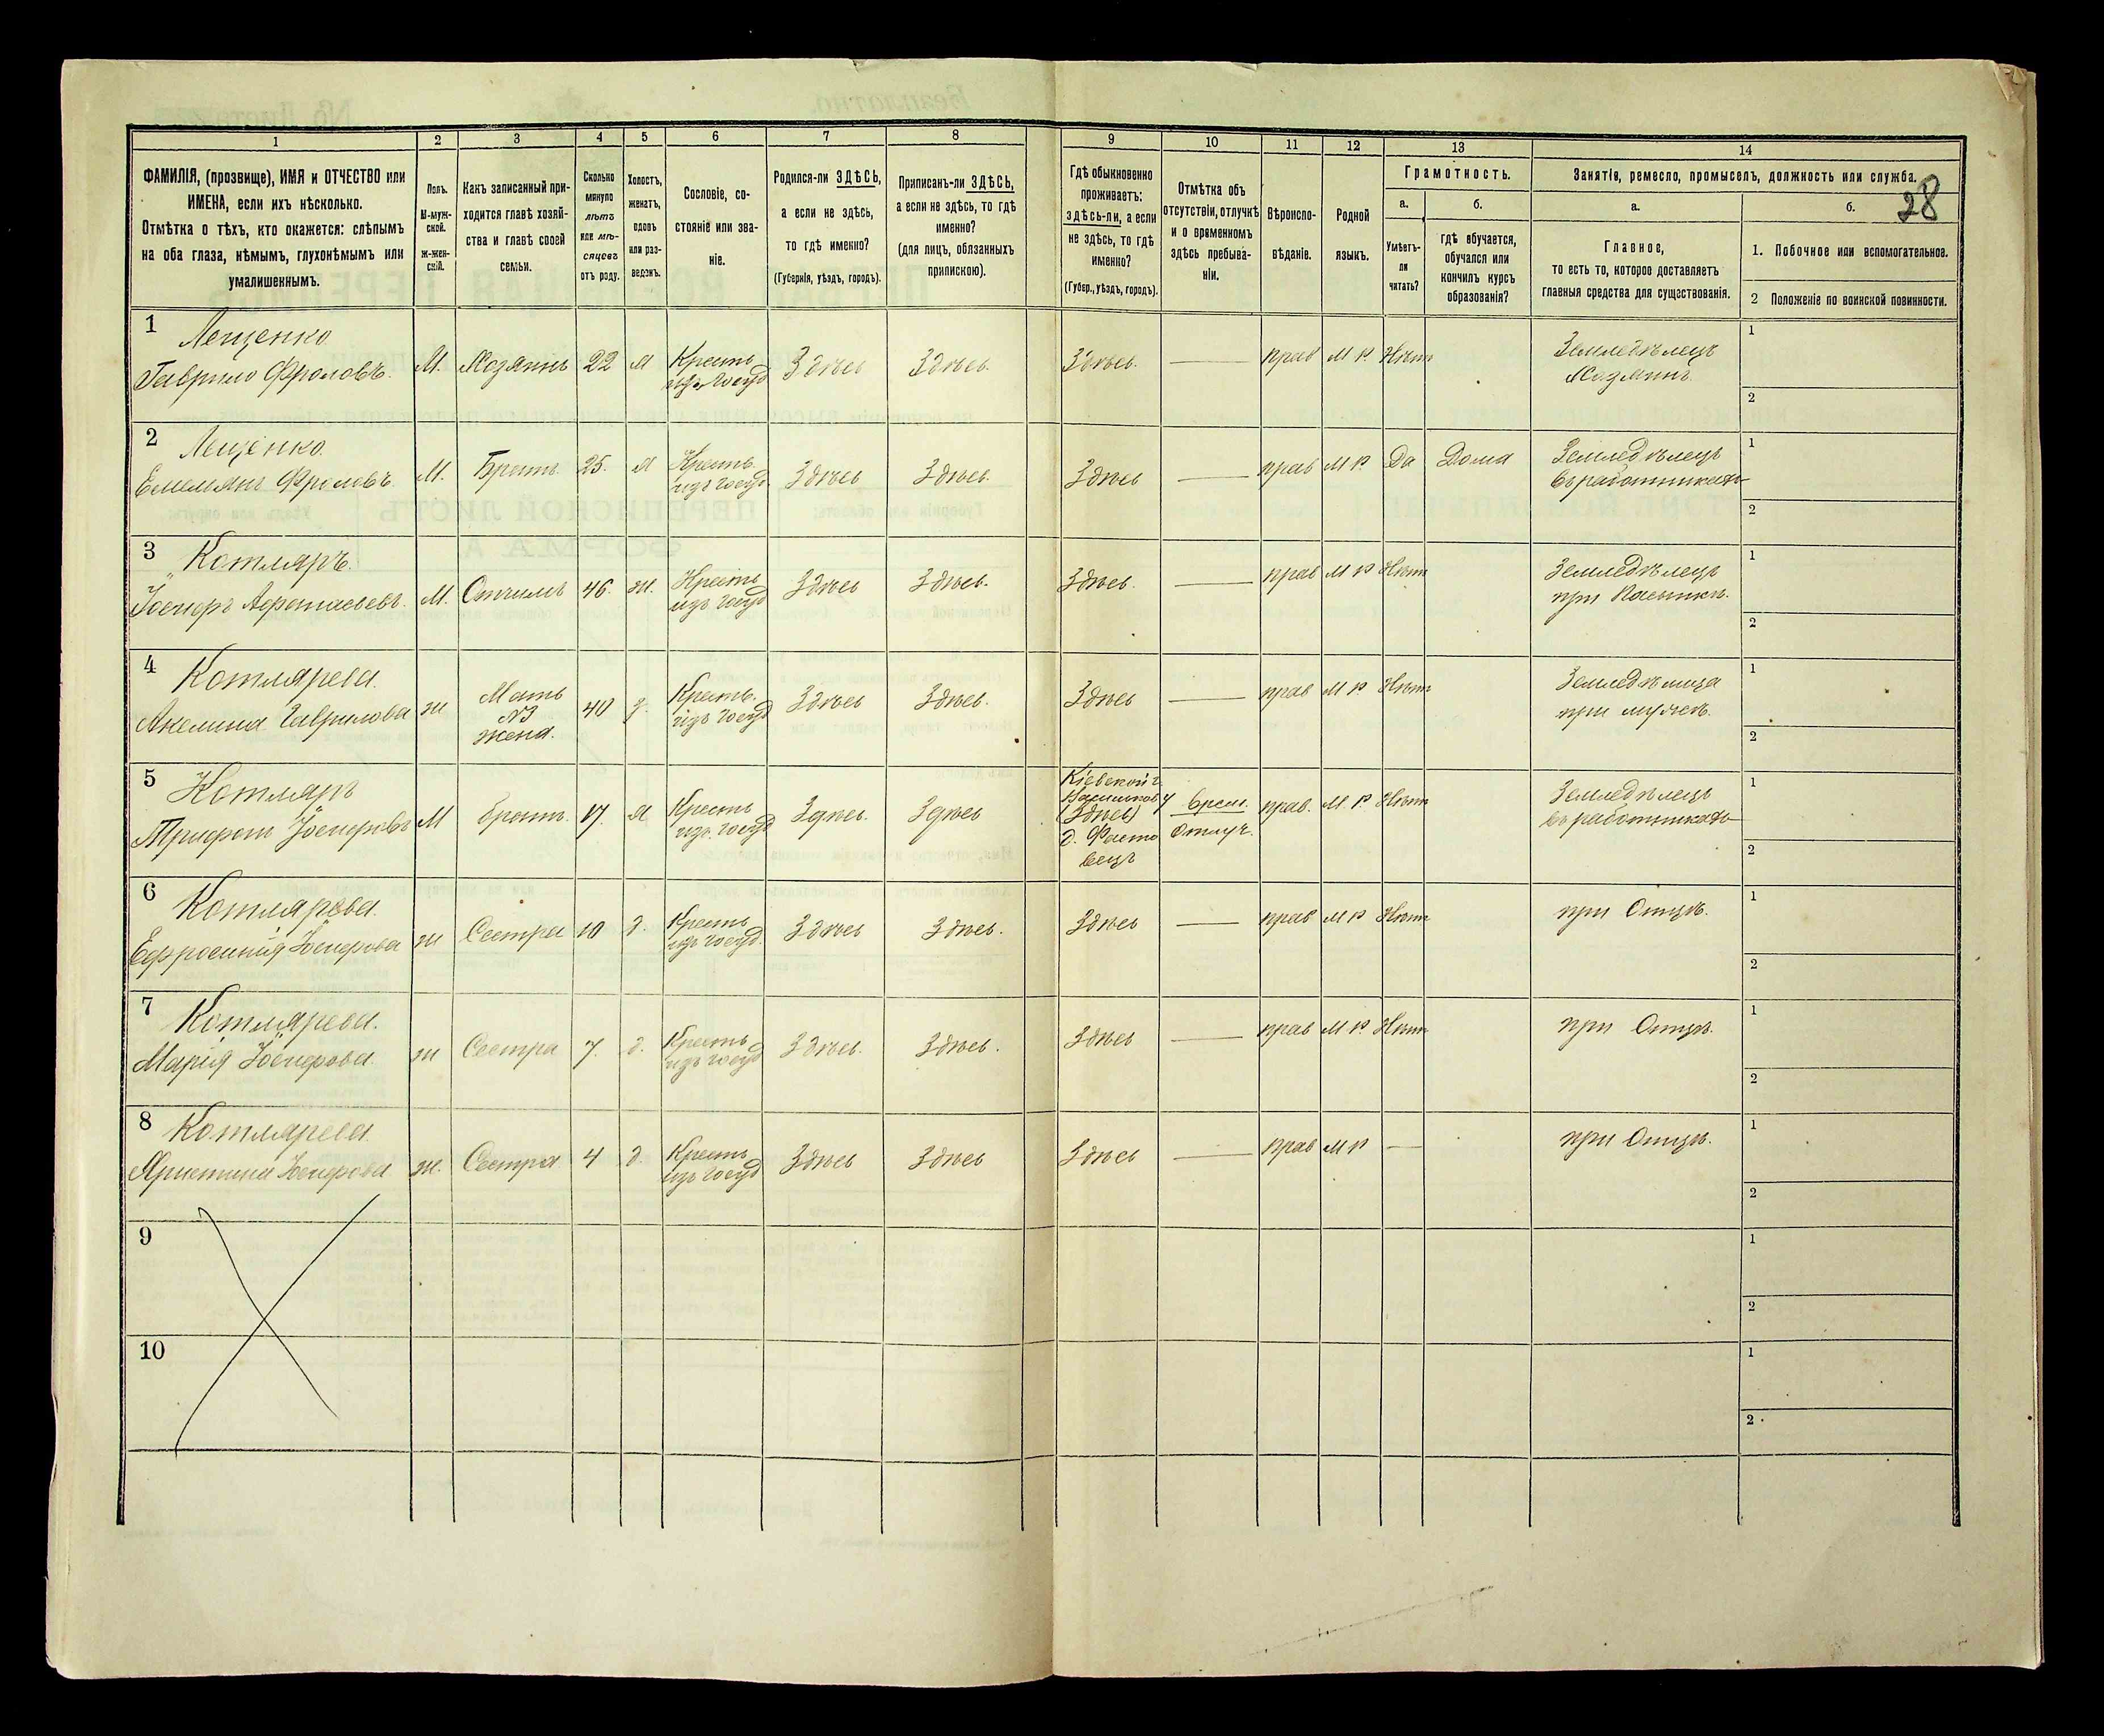 1 2 3 4 5 6 7 8 9 10 11 12 13 14
28
ФАМИЛІЯ, (прозвище), ИМЯ и ОТЧЕСТВО или
ИМЕНА, если ихъ нѣсколько.
Отмѣтка о тѣхъ, кто окажется: слѣпымъ
на оба глаза, нѣмымъ, глухонѣмымъ или
умалишеннымъ.
Полъ.
М-муж-
ской.
Ж-жен-
скій.
Какъ записанный при-
ходится главѣ хозяй-
ства и главѣ своей
семьи.
Сколько
минуло
лѣтъ
или мѣ-
сяцевъ
отъ роду.
Холостъ,
женатъ,
вдовъ
или раз-
веденъ.
Сословіе, со-
стояніе или зва-
ніе.
Родился-ли ЗДѢСЬ,
а если не здѣсь,
то гдѣ именно?
(Губернія, уѣздъ, городъ).
Приписанъ-ли ЗДѢСЬ,
а если не здѣсь, то гдѣ
именно?
(для лицъ, обязанныхъ
припискою).
Гдѣ обыкновенно
проживаетъ:
здѣсь-ли, а если
не здѣсь, то гдѣ
именно?
(Губер., уѣздъ, городъ).
Отмѣтка объ
отсутствіи, отлучкѣ
и о временномъ
здѣсь пребыва-
ніи.
Вѣроиспо-
вѣданіе.
Родной
языкъ.
Грамотность.
а.
Умѣетъ-
ли
читать?
б.
гдѣ обучается,
обучался или
кончилъ курсъ
образованія?
Занятіе, ремесло, промыселъ, должность или служба.
а.
Главное,
то есть то, которое доставляетъ
главныя средства для существованія.
б.
1. Побочное или вспомогательное.
2 Положеніе по воинской повинности.
1 Лещенко
Гаврило Фроловъ. М. Хозяинъ 22 Х Кресть
изъ госуд Здѣсь Здѣсь. Здѣсь. — прав М Р Нѣтъ Земледѣлецъ
Хозяинъ. 1
2
2 Лещенко.
Емельянъ Фроловъ. М. Братъ 25. Х Кресть.
изъ госуд. Здѣсь Здѣсь. Здѣсь — прав М Р. Да Дома Земледѣлецъ
въ работникахъ 1
2
3 Котляръ.
Іосифъ Афанасьевъ. М. Отчимъ 46. ж. Кресть
изъ госуд Здѣсь Здѣсь. Здѣсь. — прав М Р Нѣтъ Земледѣлецъ
при 1
2
4 Котлярева.
Акелина Гаврилова ж Мать
№3
жена. 40 з. Кресть.
изъ госуд Здѣсь Здѣсь. Здѣсь — прав М Р Нѣтъ Земледѣлица
при мужѣ. 1
2
5 Котляръ
Трифонъ Іосифовъ М братъ. 17. Х Кресть
изъ. госуд Здѣсь. Здѣсь Кіевской г.
Васильков у
(Здѣсь)
д. Фасто
вецъ Врем.
Отлуч. прав. М. Р. Нѣтъ Земледѣлецъ
въ работникахъ 1
2
6 Котлярева.
Ефросинія Іосифова ж Сестра 10 д. Кресть
изъ госуд. Здѣсь Здѣсь. Здѣсь — прав М Р Нѣтъ при Отцѣ. 1
2
7 Котлярева.
Марія Іосифова. ж Сестра 7. д. Кресть
изъ госуд Здѣсь. Здѣсь. Здѣсь — прав М Р. Нѣтъ при Отцѣ. 1
2
8 Котлярева
Христина Іосифова ж. Сестра 4 д. Кресть
изъ госуд Здѣсь Здѣсь Здѣсь — прав М Р — при Отцѣ. 1
2
9 1
2
10 1
2